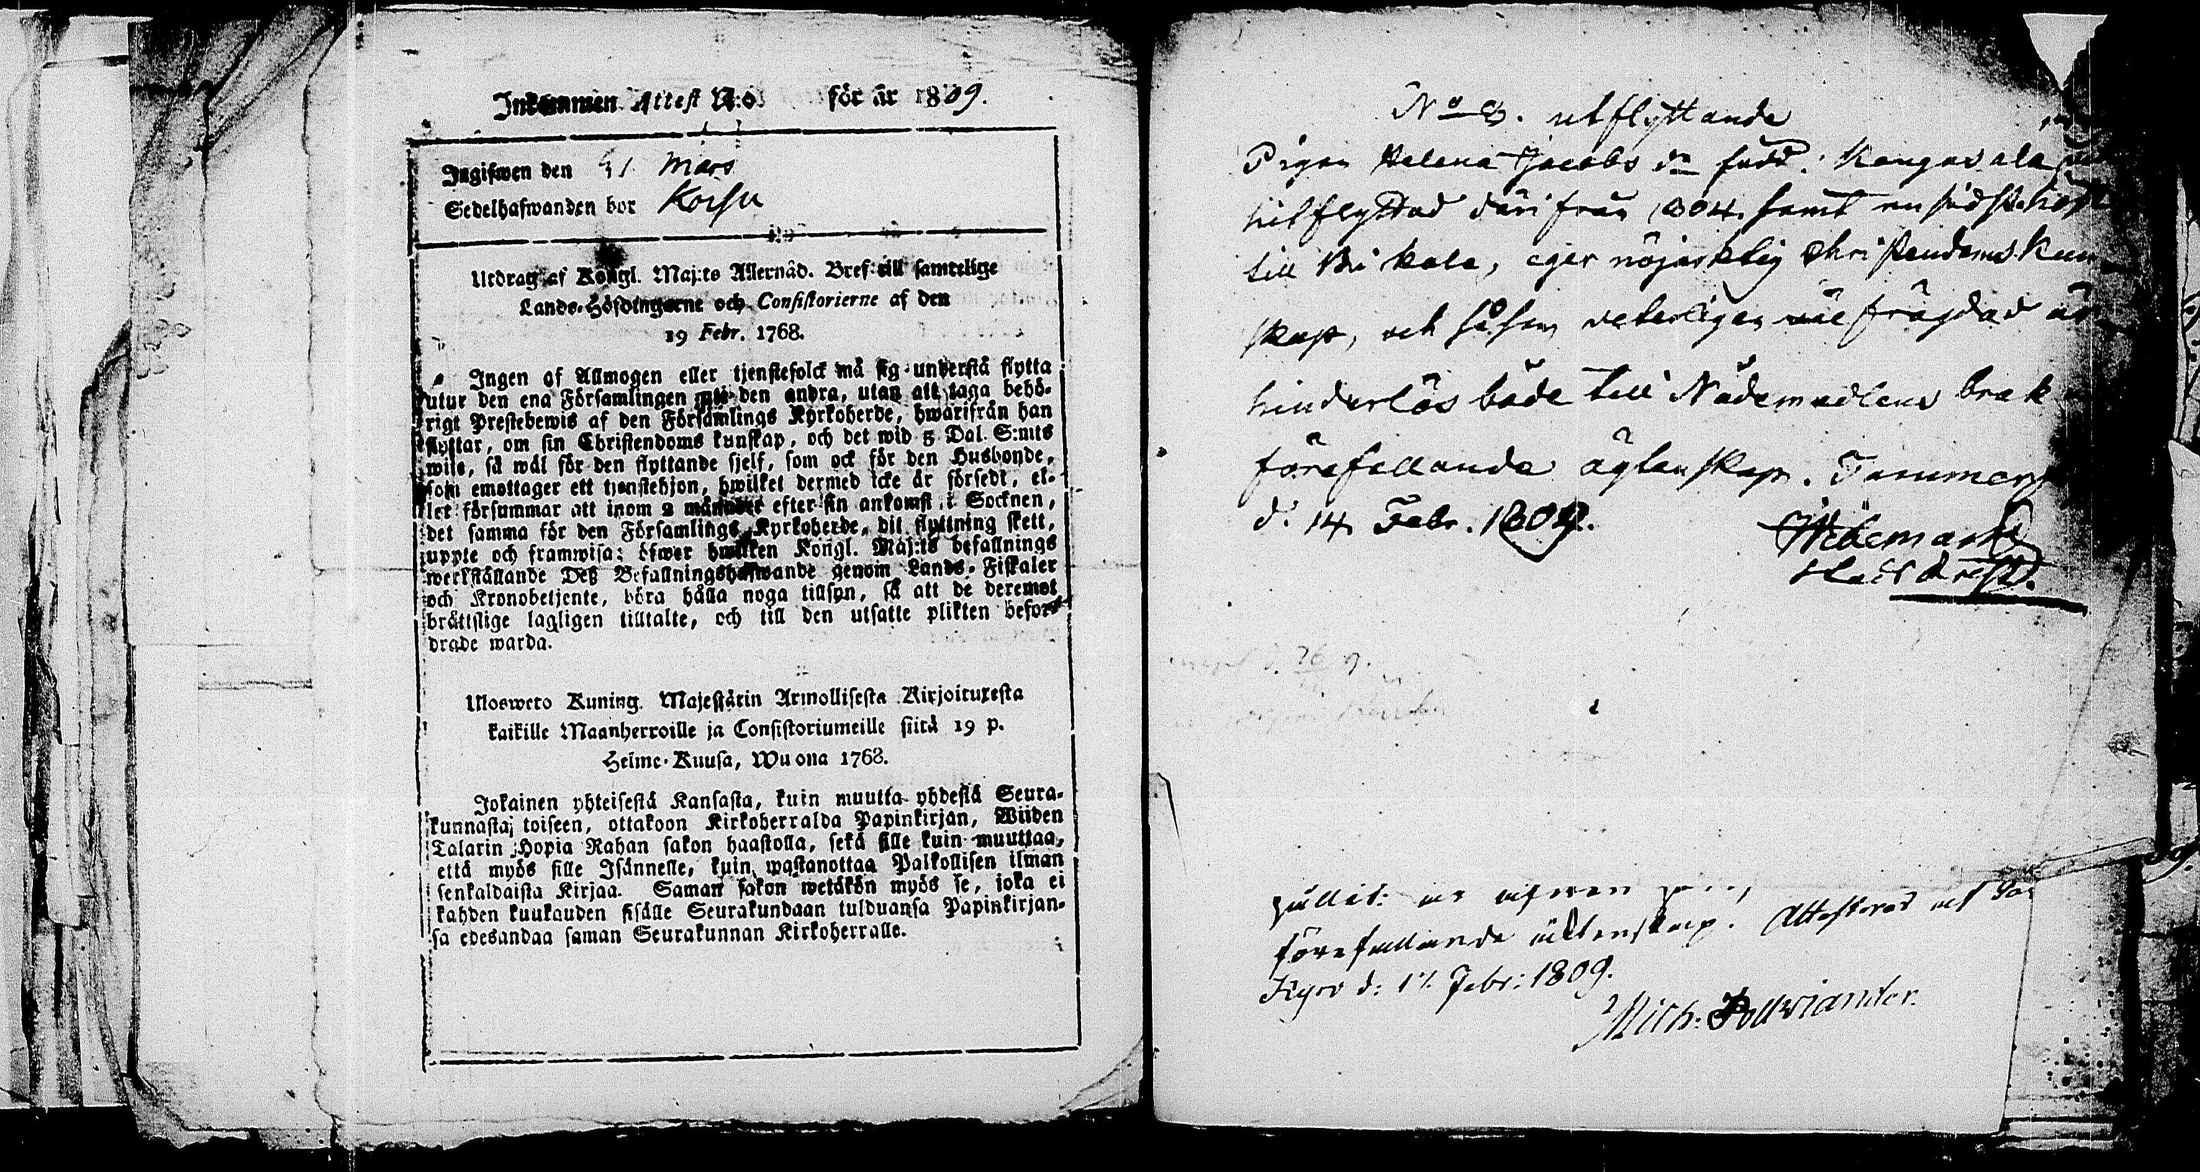 Inkommen Attest N:o för år 1809.
Ingifwen den 31 Mars
Sedelhafwanden bor Korsu
Utdrag af Kongl. Maj:ts Allernåd. Bref till samtelige
Lands-Höfdingarne och Consistorierne af den
19 Febr. 1768.
Ingen af Allmogen eller tjenstefolck må sig understå flytta
utur den ena Församlingen uti den andra, utan att taga behö-
rigt Prestebewis af den Församlings Kyrkoherde, hwarifrån han
flyttar, om sin Christendoms kunskap, och det wid 5 Dal. S:mts
wite, så wäl för den flyttande sjelf, som ock för den Husbonde,
som emottager ett tjenstehjon, hwilket dermed icke är försedt, el-
ler försummar att inom 2 månader efter sin ankomst i Socknen,
det samma för den Församlings Kyrkoherde, dit flyttning skett,
uppte och framwisa: öfwer hwilken Kongl. Maj:ts befallnings
werkställande Deß Befallningshafwande genom Lands-Fiskaler
och Kronobetjente, böra hålla noga tillsyn, så att de deremot
bråttslige lagligen tilltalte, och till den utsatte plikten befor-
drade warda.
Ulosweto Kuning. Majestätin Armollisesta Kirjoituxesta
kaikille Maanherroille ja Consistoriumeille siitä 19 p.
Helme-Kuusa, Wuona 1768.
Jokainen yhteisestä Kansasta, kuin muutta yhdestä Seura-
kunnastaj toiseen, ottakoon Kirkoherralda Papinkirjan, Wiiden
Talarin Hopia Rahan sakon haastolla, sekä sille kuin muuttaa,
että myös sille Isännelle, kuin wastanottaa Palkollisen ilman
senkaldaista Kirjaa. Saman sakon wetäkön myös se, joka ei
kahden kuukauden sisälle Seurakundaan tulduansa Papinkirjan-
sa edesandaa saman Seurakunnan Kirkoherralle.
No 8. utflyttande
Pigan Helena Jacobs dr född i Kangasala
hitflyttad därifrån 1804. samt nu
till Birkala, eger nöjaktig Christendoms Kun-
skap, och såsom veterligen wälfrägdad är
hinderlös både till Nådemedlens bruk
förefallande ägtenskap. Tammerf
d: 14 Febr. 1809.
förefallande äktenskap. Attesteras af
Kyro d: 17. Febr: 1809.
Mich: Pollviander.